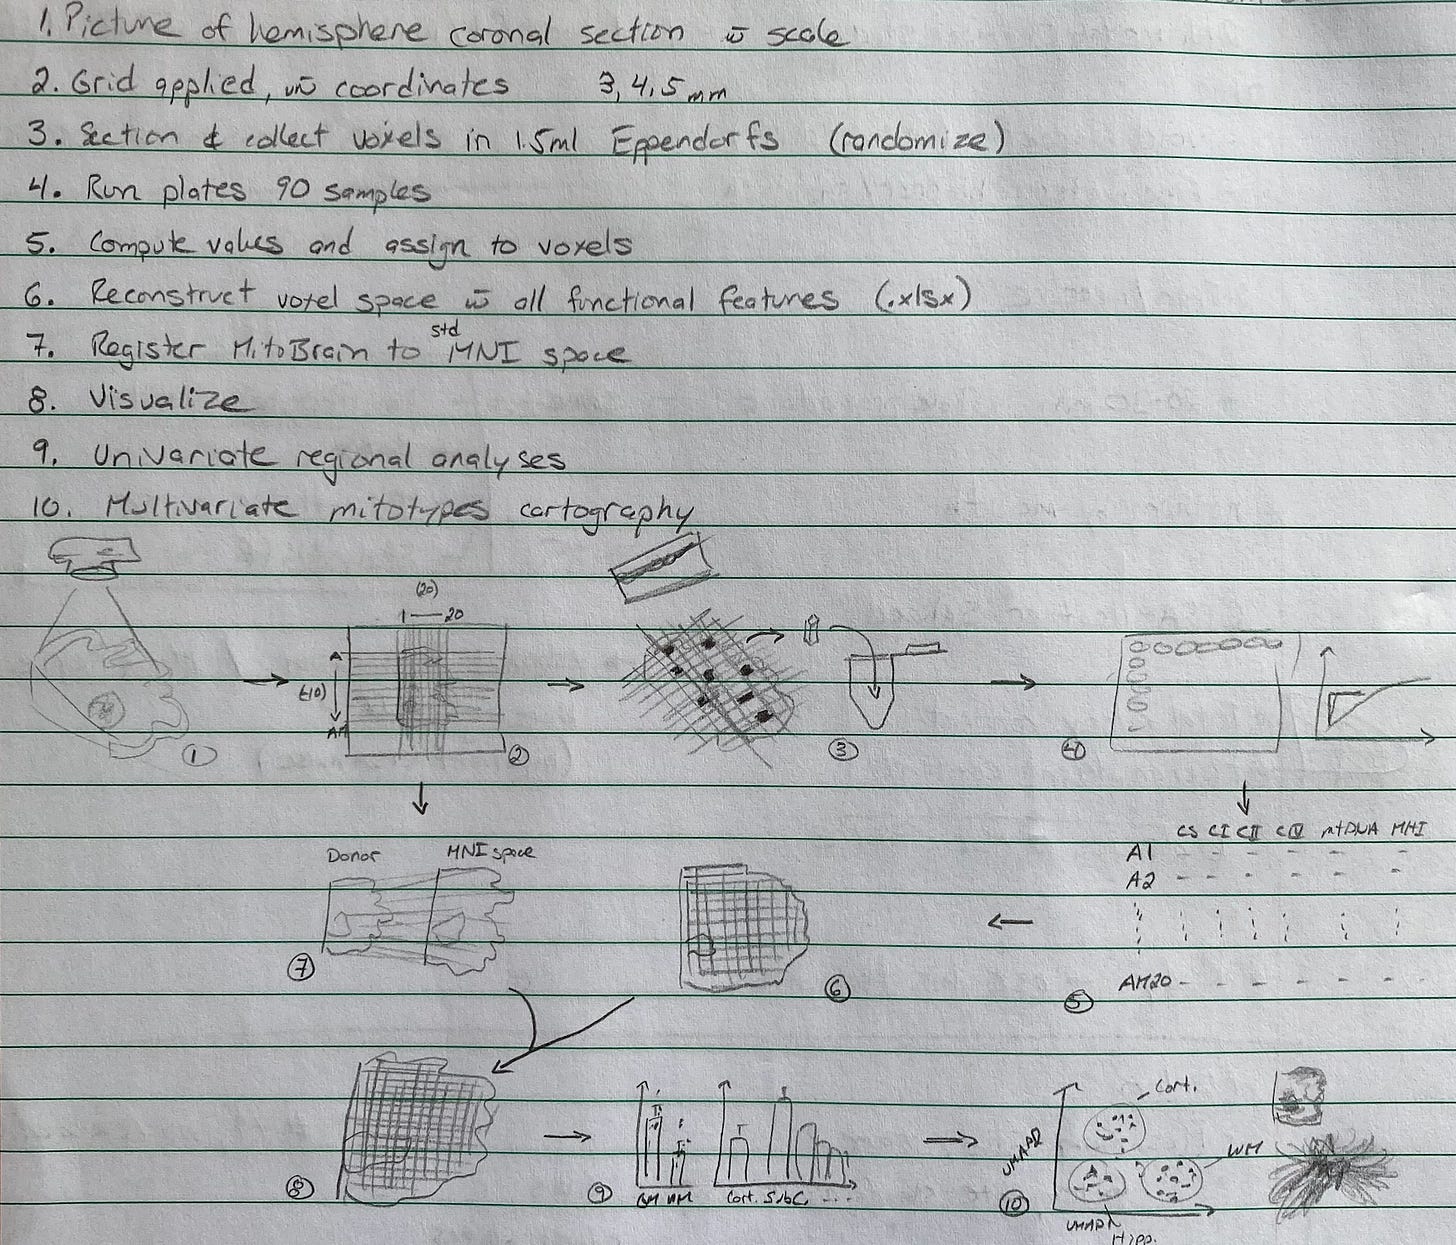 1. Picture of hemisphere coronal section w̄ scale
2. Grid applied, w̄ coordinates 3, 4, 5 mm
3. Section & collect voxels in 1.5ml Eppendorfs (randomize)
4. Run plates 90 samples
5. Compute values and assign to voxels
6. Reconstruct voxel space w̄ all functional features (.xlsx)
7. Register MitoBrain to std MNI space
8. Visualize
9. Univariate regional analyses
10. Multivariate mitotypes cartography
(20)
1 — 20
A
AM
1
2
3
4
CS CI CII CIV mtDNA MHI
A1
A2
AM20
5
Donor MNI space
7
6
8
9
GM WM
Cort. SubC. ...
10
UMAP2
Cort.
WM
UMAP1
Hipp.